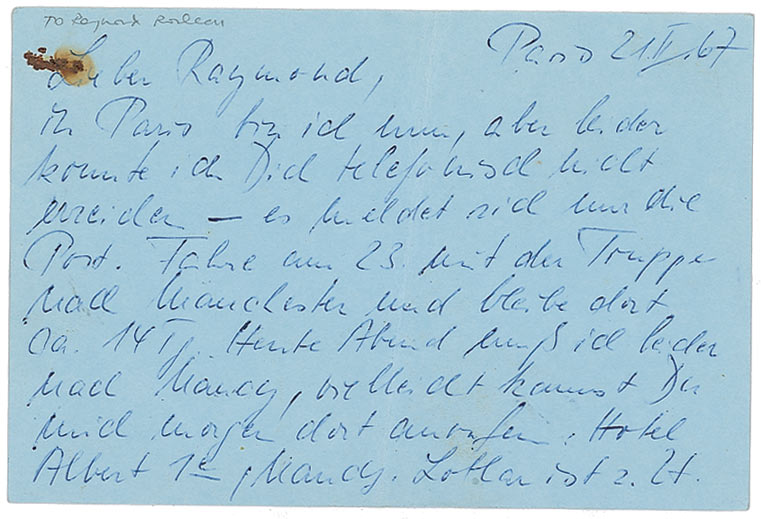 To Raymond
Paris 21.II.67
Lieber Raymond,
in Paris bin ich nun, aber leider
konnte ich Dich telefonisch nicht
erreichen – es meldet sich nur die
Post. Fahre am 23. mit der Truppe
nach Manchester und bleibe dort
ca. 14 Tg. Heute Abend muß ich leider
nach Nancy, vielleicht kannst Du
mich morgen dort anrufen: Hotel
Albert 1er, Nancy. Lothar ist z. Zt.